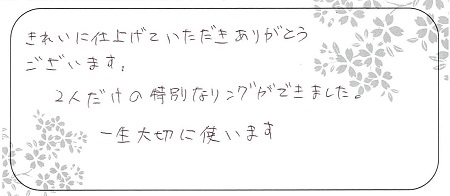 きれいに仕上げていただきありがとう
ございます。
2人だけの特別なリングができました。
一生大切に使います